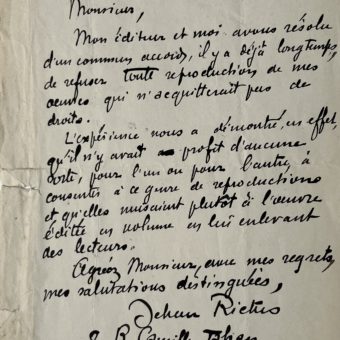 Monsieur,
Mon éditeur et moi avons résolu
d'un commun accord, il y a déjà longtemps,
de refuser toute reproduction de mes
oeuvres qui n'acquitterait pas de
droits.
L'expérience nous a démontré, en effet,
qu'il n'y avait profit d'aucune
sorte, pour l'un ou pour l'autre, à
consentir à ce genre de reproductions
et qu'elles nuisaient plutôt à l'oeuvre
éditée en volume en lui enlevant
des lecteurs.
Agréez Monsieur, avec mes regrets,
mes salutations distinguées,
Jehan Rictus
R. Camille